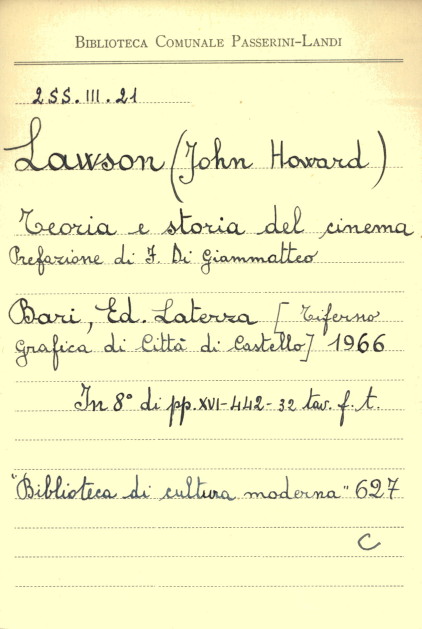 Biblioteca Comunale Passerini-Landi
2SS.III.21
Lawson (John Howard)
Teoria e storia del cinema
Prefazione di F. Di Giammatteo
Bari, Ed. Laterza [Tiferno
Grafica di Città di Castello] 1966
In 8° di pp. XVI-442-32 tav. f. t.
"Biblioteca di cultura moderna" 627
C